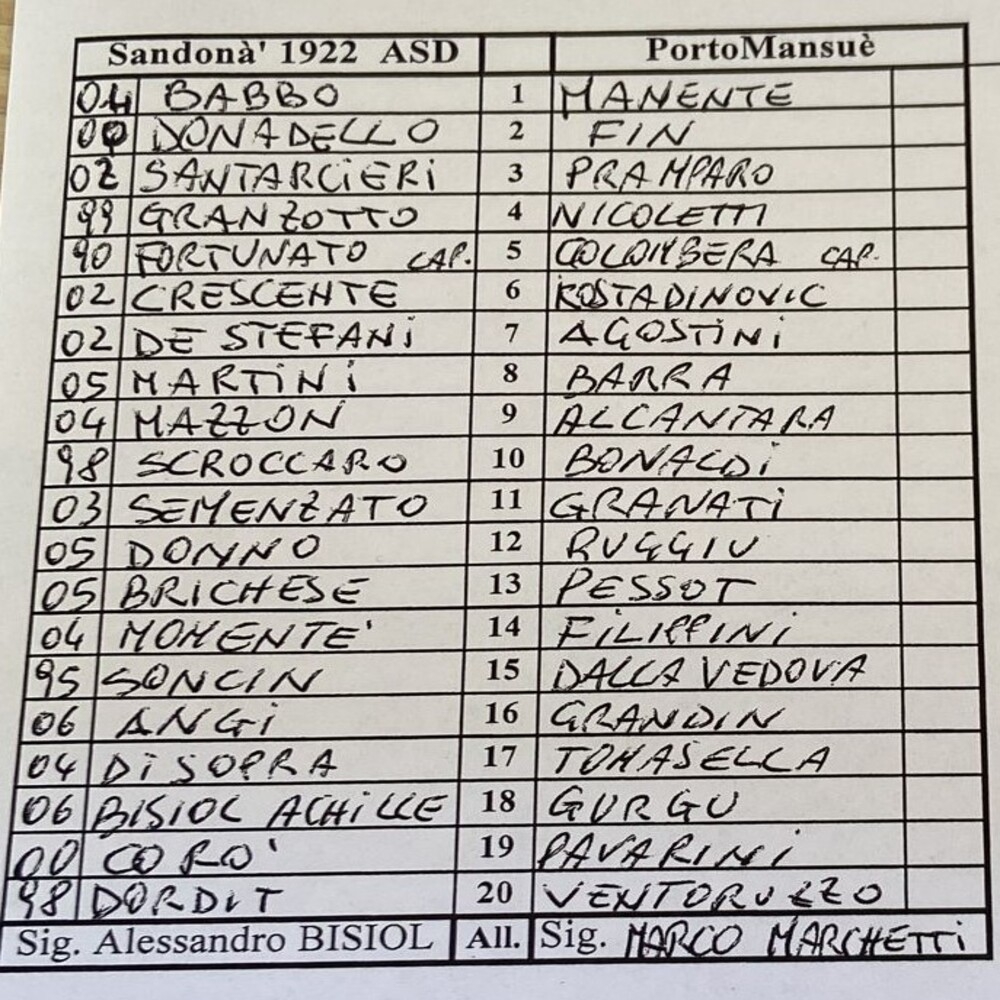 Sandonà' 1922 ASD PortoMansuè
04 BABBO 1 MANENTE
00 DONADELLO 2 FIN
02 SANTARCiERi 3 PRAMPARO
99 GRANZOTTO 4 NICOLETTI
90 FORTUNATO CAP. 5 COLOMBERA CAP.
02 CRESCENTE 6 KOSTADINOVIC
02 DE STEFANi 7 AGOSTiNi
05 MARTiNi 8 BARRA
04 MAZZON 9 ALCANTARA
98 SCROCCARO 10 BONALDi
03 SEMENZATO 11 GRANATi
05 DONNO 12 RUGGIU
05 BRICHESE 13 PESSOT
04 MOMENTE' 14 FiLiPPiNi
95 SONCIN 15 DALLA VEDOVA
06 ANGi 16 GRANDIN
04 Di SOPRA 17 TOMASELLA
06 BISIOL ACHiLLE 18 GURGU
00 CORO' 19 PAVARiNi
98 DORDIT 20 VENTORUZZO
Sig. Alessandro BISIOL All. Sig. MARCO MARCHETTi